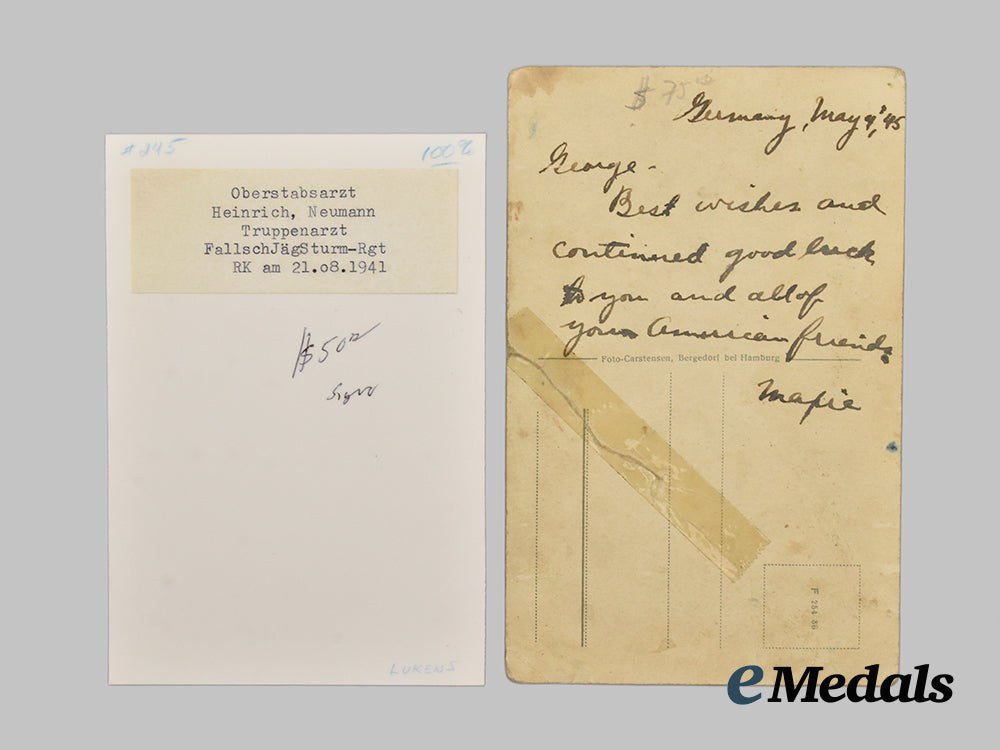 #245
100%
Oberstabsarzt
Heinrich, Neumann
Truppenarzt
FallschJägSturm-Rgt
RK am 21.o8.1941
$50
LUKENS
$75
Germany, May 9, '45
George-
Best wishes and
continued good luck
to you and all of
your American friends.
Foto-Carstensen, Bergedorf bei Hamburg
F 254 36
eMedals